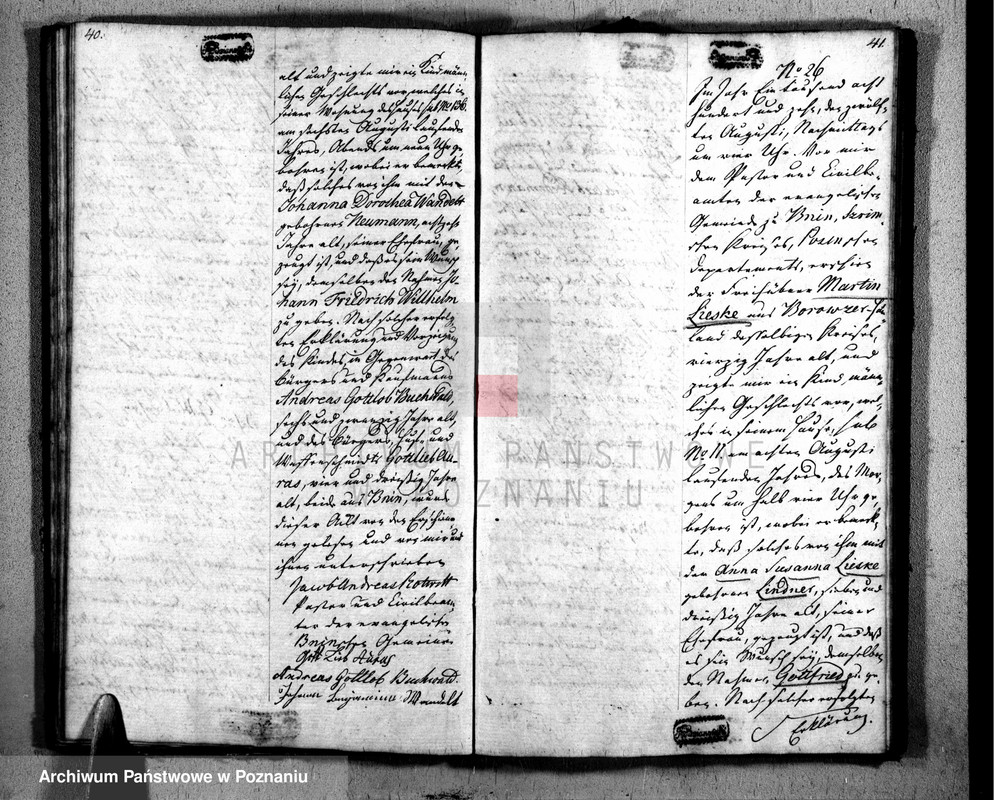 40.
alt und zeigte mir ein Kind männ-
lichen Geschlechts vor, welches in
seiner Wohnung des Hauses sub No 136.
am sechsten Augusti laufenden
Jahres, Abends um neun Uhr ge-
bohren ist, wobei er bemerkt,
daß solches von ihm mit der
Johanna Dorothea Wandelt
gebohrnen Neumann, achtzehn
Jahre alt, seiner Ehefrau, ge-
zeugt ist, und daß es sein Wunsch
sey, demselben den Nahmen Jo-
hann Friedrich Willhelm
zu geben. Nach solcher erfolg-
ten Erklärung und Vorzeigung
des Kindes, in Gegenwart des
Bürgers und Kaufmanns
Andreas Gottlob Buchwald,
sechs und zwanzig Jahre alt,
und des Bürgers, Huf- und
Waffenschmidts Gottlieb Au-
ras, vier und dreißig Jahre
alt, beide aus Bnin, wurde
dieser Act von den Erschiene-
nen gelesen und von mir und
ihnen unterschrieben
Jacob Andreas
Pastor und Civilbeam-
ter der evangelischen
Bninschen Gemeinde
Gottlieb Auras
Andreas Gottlob Buchwald.
Johann Benjamin Wandelt
41.
No 26
Im Jahr Eintausend acht
hundert und zehn, den zwölf-
ten Augusti, Nachmittags
um vier Uhr. Vor mir
dem Pastor und Civilbe-
amten der evangelischen
Gemeinde zu Bnin, Szrim-
schen Kreises, Posenschen
Departements, erschien
der Freihübner Martin
Lieske aus Borowzer-Hau-
land desselbigen Kreises,
vierzig Jahre alt, und
zeigte mir ein Kind männ-
lichen Geschlechts vor, wel-
ches in seinem Hause, sub
No 11. am achten Augusti
laufenden Jahres, des Mor-
gens um halb vier Uhr ge-
bohren ist, wobei er bemerk-
te, daß solches von ihm mit
der Anna Susanna Lieske
gebohrnen Lindner, sieben und
dreißig Jahre alt, seiner
Ehefrau, gezeugt ist, und daß
es sein Wunsch sey, demselben
den Nahmen Gottfried zu ge-
ben. Nach solcher erfolgten
Erklärung.
ARCHIWUM PAŃSTWOWE
W POZNANIU
Archiwum Państwowe w Poznaniu